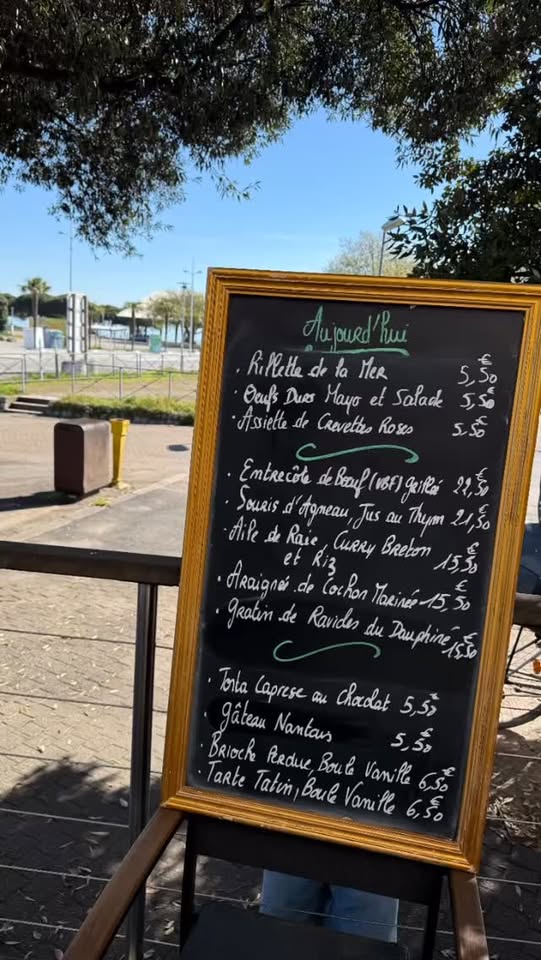 Aujourd'hui
· Rillette de la Mer 5,50€
· Oeufs Durs Mayo et Salade 5,50€
· Assiette de Crevettes Roses 5,50€
· Entrecôte de Bœuf (VBF) grillée 22,50€
· Souris d'Agneau, Jus au Thym 21,50€
· Aile de Raie, Curry Breton 15,50€
et Riz
· Araignée de Cochon Marinée 15,50€
· Gratin de Ravioles du Dauphiné 15,50€
· Torta Caprese au chocolat 5,50€
· Gâteau Nantais 5,50€
· Brioche Perdue, Boule Vanille 6,50€
· Tarte Tatin, Boule Vanille 6,50€